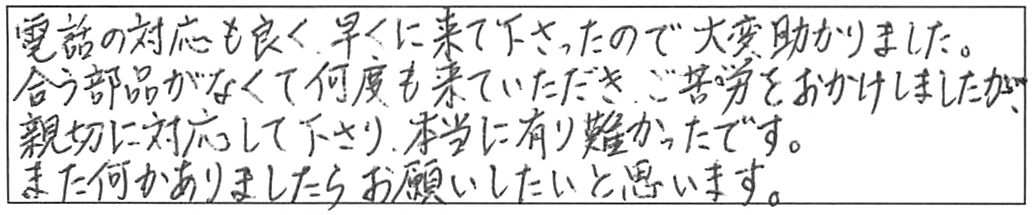 電話の対応も良く、早くに来て下さったので大変助かりました。
合う部品がなくて何度も来ていただき、ご苦労をおかけしましたが、
親切に対応して下さり、本当に有り難かったです。
また何かありましたらお願いしたいと思います。